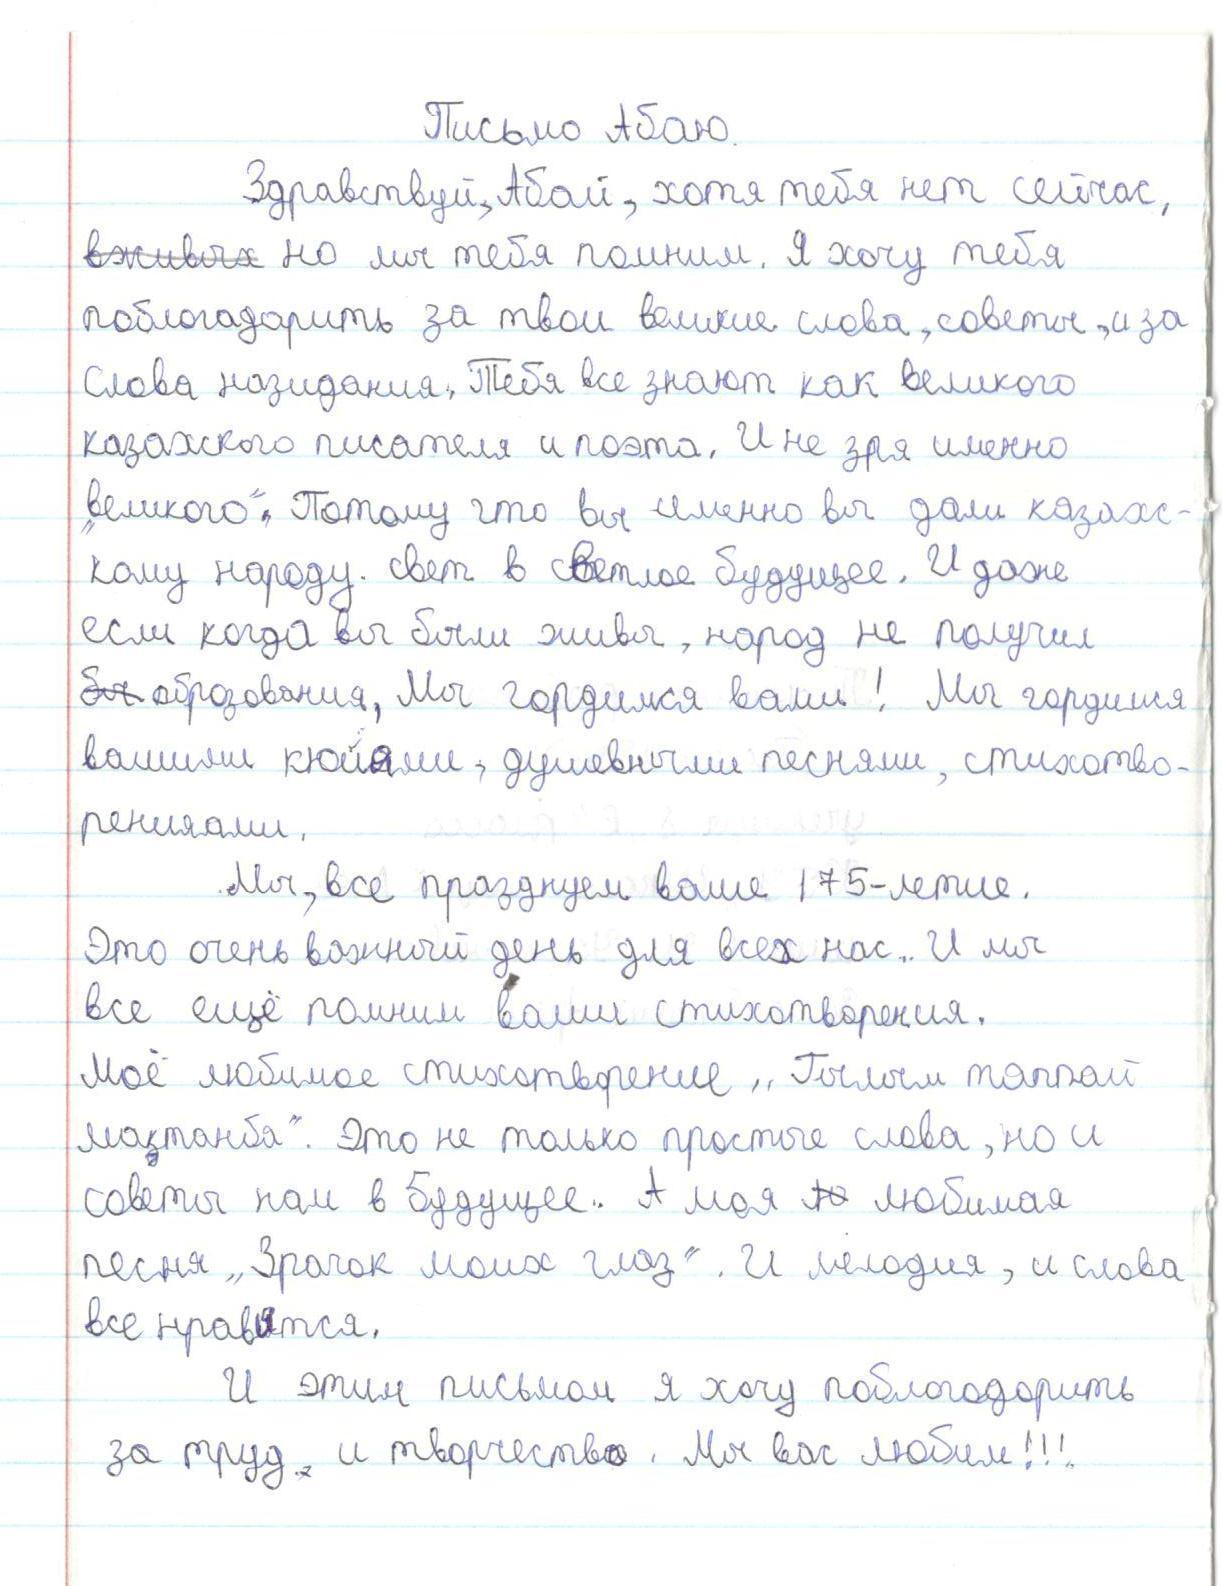 Письмо Абаю.
Здравствуй, Абай, хотя тебя нет сейчас,
вживых но мы тебя помним. Я хочу тебя
поблогадарить за твои великие слова, советы, и за
слова назидания. Тебя все знают как великого
казахского писателя и поэта. И не зря именно
„великого“. Потому что вы именно вы дали казахс-
кому народу. свет в светлое будущее. И даже
если когда вы были живы, народ не получил
бы образования, Мы гордимся вами! Мы гордимся
вашими кюйами, душевными песнями, стихотво-
ренияами.
Мы, все празднуем ваше 175-летие.
Это очень важный день для всех нас.. И мы
все ещё помним ваши стихотворения.
Моё любимое стихотворение „Ғылым таппай
мақтанба“. Это не только простые слова, но и
советы нам в будущее.. А моя лю любимая
песня „Зрачок моих глаз“. И мелодия, и слова
все нравятся.
И этим письмом я хочу поблогодорить
за труд, и творчество. Мы вас любим!!!